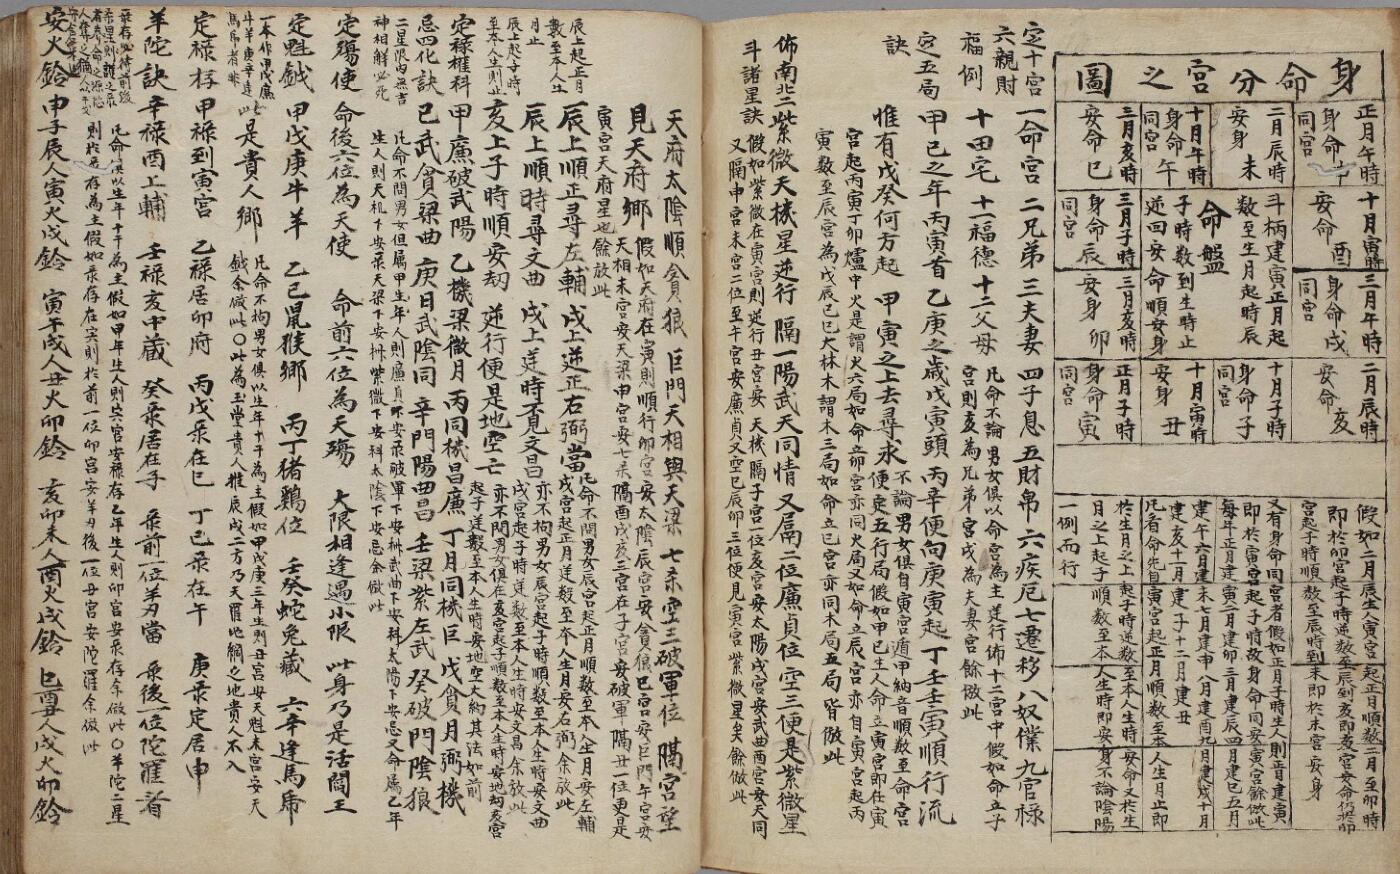 身命分宮之圖
正月午時
身命
同宮
二月辰時
安身 未
十月午時
身命 午
同宮
三月亥時
安命 巳
十月寅時
安命 酉
斗柄建寅正月起
數至生月起時辰
命盤
子時數到生時止
逆回安命順安身
三月子時
身命辰
同宮
三月午時
身命戌
同宮
三月亥時
安身 卯
二月辰時
安命 亥
十月子時
身命子
同宮
十月寅時
安身 丑
正月子時
身命寅
同宮
假如二月辰生人寅宮起正月順數二月至卯時
即於卯宮起子時逆數至辰到亥即亥宮安命仍於卯
宮起子時順數至辰時到未即於未宮安身
又有身命同宮者假如正月子時生人則肯建寅
即於寅宮起子時故身命同安寅宮餘倣此
每年正月建寅二月建卯三月建辰四月建巳五月
建午六月建未七月建申八月建酉九月建戌十月
建亥十一月建子十二月建丑
凡看命先自寅宮起正月順數至本人生月止即
於生月之上起子時逆數至本人生時安命又於生
月之上起子順數至本人生時即安身不論陰陽
一例而行
定十宮
六親財
福例
一命宮 二兄弟 三夫妻 四子息 五財帛 六疾厄 七遷移 八奴僕 九官祿
十田宅 十一福德 十二父母
凡命不論男女俱以命宮為主逆行佈十二宮中假如命立子
宮則亥為兄弟宮戌為夫妻宮餘倣此
定五局
訣
甲己之年丙寅首 乙庚之歲戊寅頭 丙辛便向庚寅起 丁壬壬寅順行流
惟有戊癸何方起 甲寅之上去尋求
不論男女俱自寅宮遁甲納音順數至命宮
便定五行局假如甲己生人命立寅宮即在寅
宮起丙寅丁卯爐中火是謂火六局如命立卯宮亦同火局又如命立辰宮亦自寅宮起丙
寅數至辰宮為戊辰己巳大林木謂木三局如命立巳宮亦同木局五局皆倣此
佈南北二
斗諸星訣
紫微天機星逆行 隔一陽武天同情 又隔二位廉貞位 空三便是紫微星
假如紫微在寅宮則逆行丑宮安天機隔子宮一位亥宮安太陽戌宮安武曲酉宮安天同
又隔申宮未宮二位至午宮安廉貞又空巳辰卯三位便見寅宮紫微星矣餘倣此
天府太陰順貪狼 巨門天相與天梁 七殺空三破軍位 隔宮望
見天府鄉
假如天府在寅則順行卯宮安太陰辰宮安貪狼巳宮安巨門午宮安
天相未宮安天梁申宮安七殺隔酉戌亥三宮在子宮安破軍隔丑一位更是
寅宮天府星也餘放此
辰上起正月
數至本人生
月止
辰上順正尋左輔 戌上逆正右弼當
凡命不問男女辰宮起正月順數至本人生月安左輔
戌宮起正月逆數至本人生月安右弼余放此
辰上起子時
至本人生則止
辰上順時尋文曲 戌上逆時覓文昌
亦不拘男女辰宮起子時順數至本人生時安文曲
戌宮起子時逆數至本人生時安文昌余放此
亥上子時順安劫 逆行便是地空亡
亦不問男女俱在亥宮起子順數至本人生時安地劫亥宮
起子逆數至本人生時安地空火約其法如前
定祿權科
忌四化訣
甲廉破武陽 乙機梁微月 丙同機昌廉 丁月同機巨 戊貪月弼機
己武貪梁曲 庚日武陰同 辛門陽曲昌 壬梁紫左武 癸破門陰狼
二星限內無吉
神相解必死
凡命不問男女但屬甲生年人則廉貞下安彔破軍下安𣏌武曲下安科太陽下安忌又命屬乙年
生人則天机下安彔天梁下安𣏌紫微下安科太陰下安忌余倣此
定殤使 命後六位為天使 命前六位為天殤 大限相逢遇小限 此身乃是活閻王
定魁鉞 甲戊庚牛羊 乙己鼠猴鄉 丙丁猪鷄位 壬癸蛇兔藏 六辛逢馬虎
一本作甲戊廉
斗羊庚辛逢
馬虎者非
是貴人鄉
凡命不拘男女俱以生年十干為主假如甲戊庚三年生則丑宮安天魁未宮安天
鉞余倣此〇此為玉堂貴人惟辰戌二方乃天羅地網之地貴人不入
定祿存 甲祿到寅宮 乙祿居卯府 丙戊彔在巳 丁己彔在午 庚彔定居申
羊陀訣 辛祿酉上輔 壬祿亥中藏 癸彔居在子 彔前一位羊刃當 彔後一位陀羅者
凡命俱以生年十干為主假如甲年生人則寅宮安祿存乙年生人則卯宮安彔存余倣此〇羊陀二星
則於彔存為主假如彔存在寅則於前一位卯宮安羊刃後一位丑宮安陀羅余倣此
安火鈴 申子辰人寅火戌鈴 寅午戌人丑火卯鈴 亥卯未人酉火戌鈴 巳酉丑人戌火卯鈴